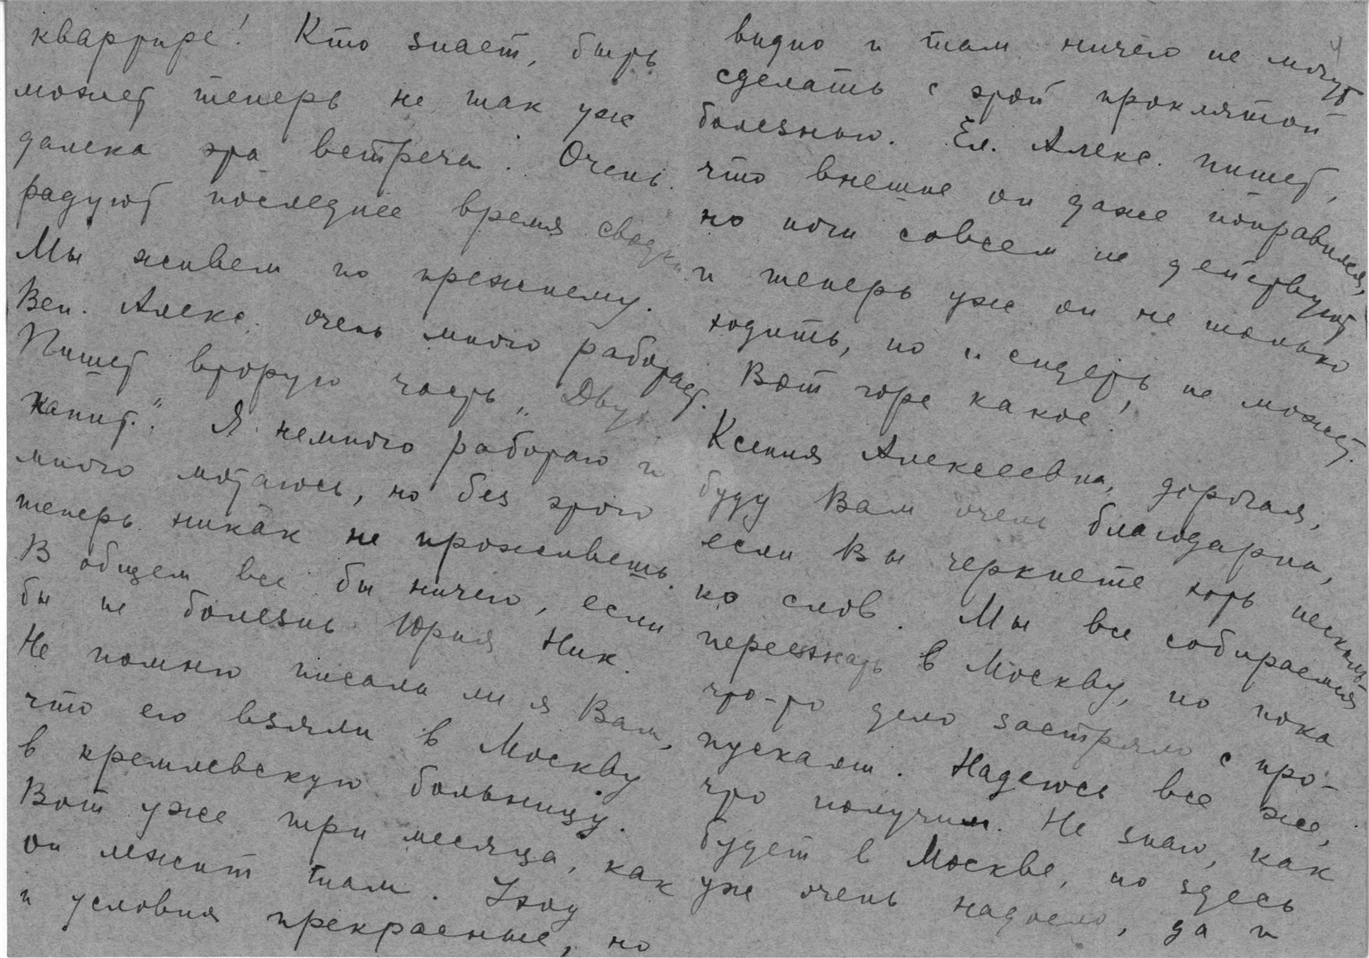 квартире! Кто знает, быть
может теперь не так уж
далека эта встреча. Очень
радуют последнее время сводки.
Мы живем по прежнему.
Вен. Алекс. очень много работает.
Пишет вторую часть „Двух
капит." Я немного работаю и
много мотаюсь, но без этого
теперь никак не проживешь.
В общем все бы ничего, если
бы не болезнь Юрия Ник.
Не помню писала ли я Вам,
что его взяли в Москву
в кремлевскую больницу.
Вот уже три месяца, как
он лежит там. Уход
и условия прекрасные, но
видно и там ничего не могут
сделать с этой проклятой
болезнью. Ел. Алекс. пишет,
что внешне он даже поправился,
но ноги совсем не действуют
и теперь уж он не только
ходить, но и сидеть не может.
Вот горе какое!
Ксения Алексеевна, дорогая,
буду Вам очень благодарна,
если Вы черкнете хоть несколь-
ко слов. Мы все собираемся
переезжать в Москву, но пока
что-то дело застряло с про-
пусками. Надеюсь все же,
что получим. Не знаю, как
будет в Москве, но здесь
уж очень надоело, да и